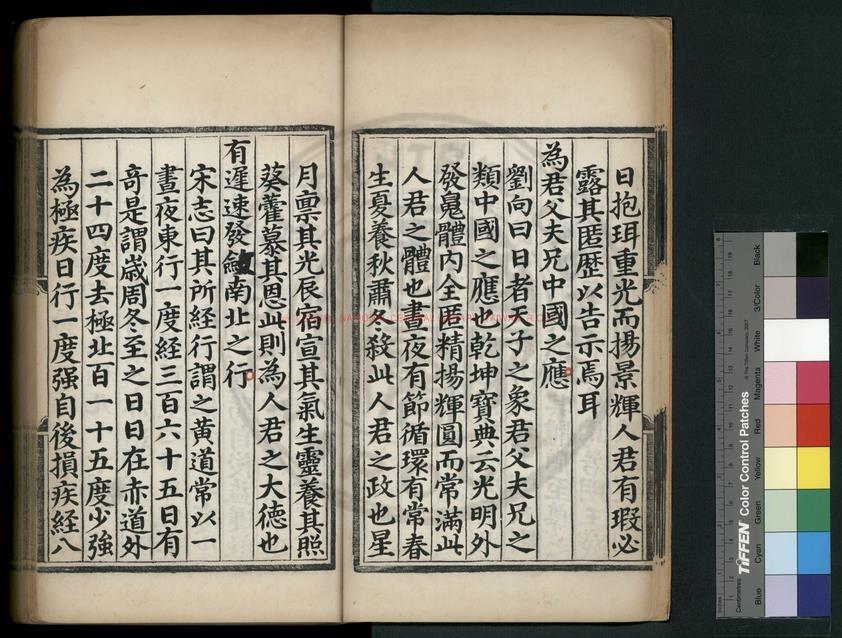 日抱珥重光而揚景輝人君有瑕必
露其匿歷以告示焉耳
為君父夫兄中國之應
劉向曰日者天子之象君父夫兄之
類中國之應也乾坤寶典云光明外
發䰟體內全匿精揚輝圓而常滿此
人君之體也晝夜有節循環有常春
生夏養秋肅冬殺此人君之政也星
月稟其光辰宿宣其氣生靈養其照
葵藿慕其恩此則為人君之大德也
有遲速發斂南北之行
宋志曰其所經行謂之黃道常以一
晝夜東行一度經三百六十五日有
奇是謂歲周冬至之日日在赤道外
二十四度去極北百一十五度少強
為極疾日行一度强自後損疾經八
TIFFEN Color Control Patches
© The Tiffen Company, 2007
Centimetres
Inches
Blue
Cyan
Green
Yellow
Red
Magenta
White
3/Color
Black